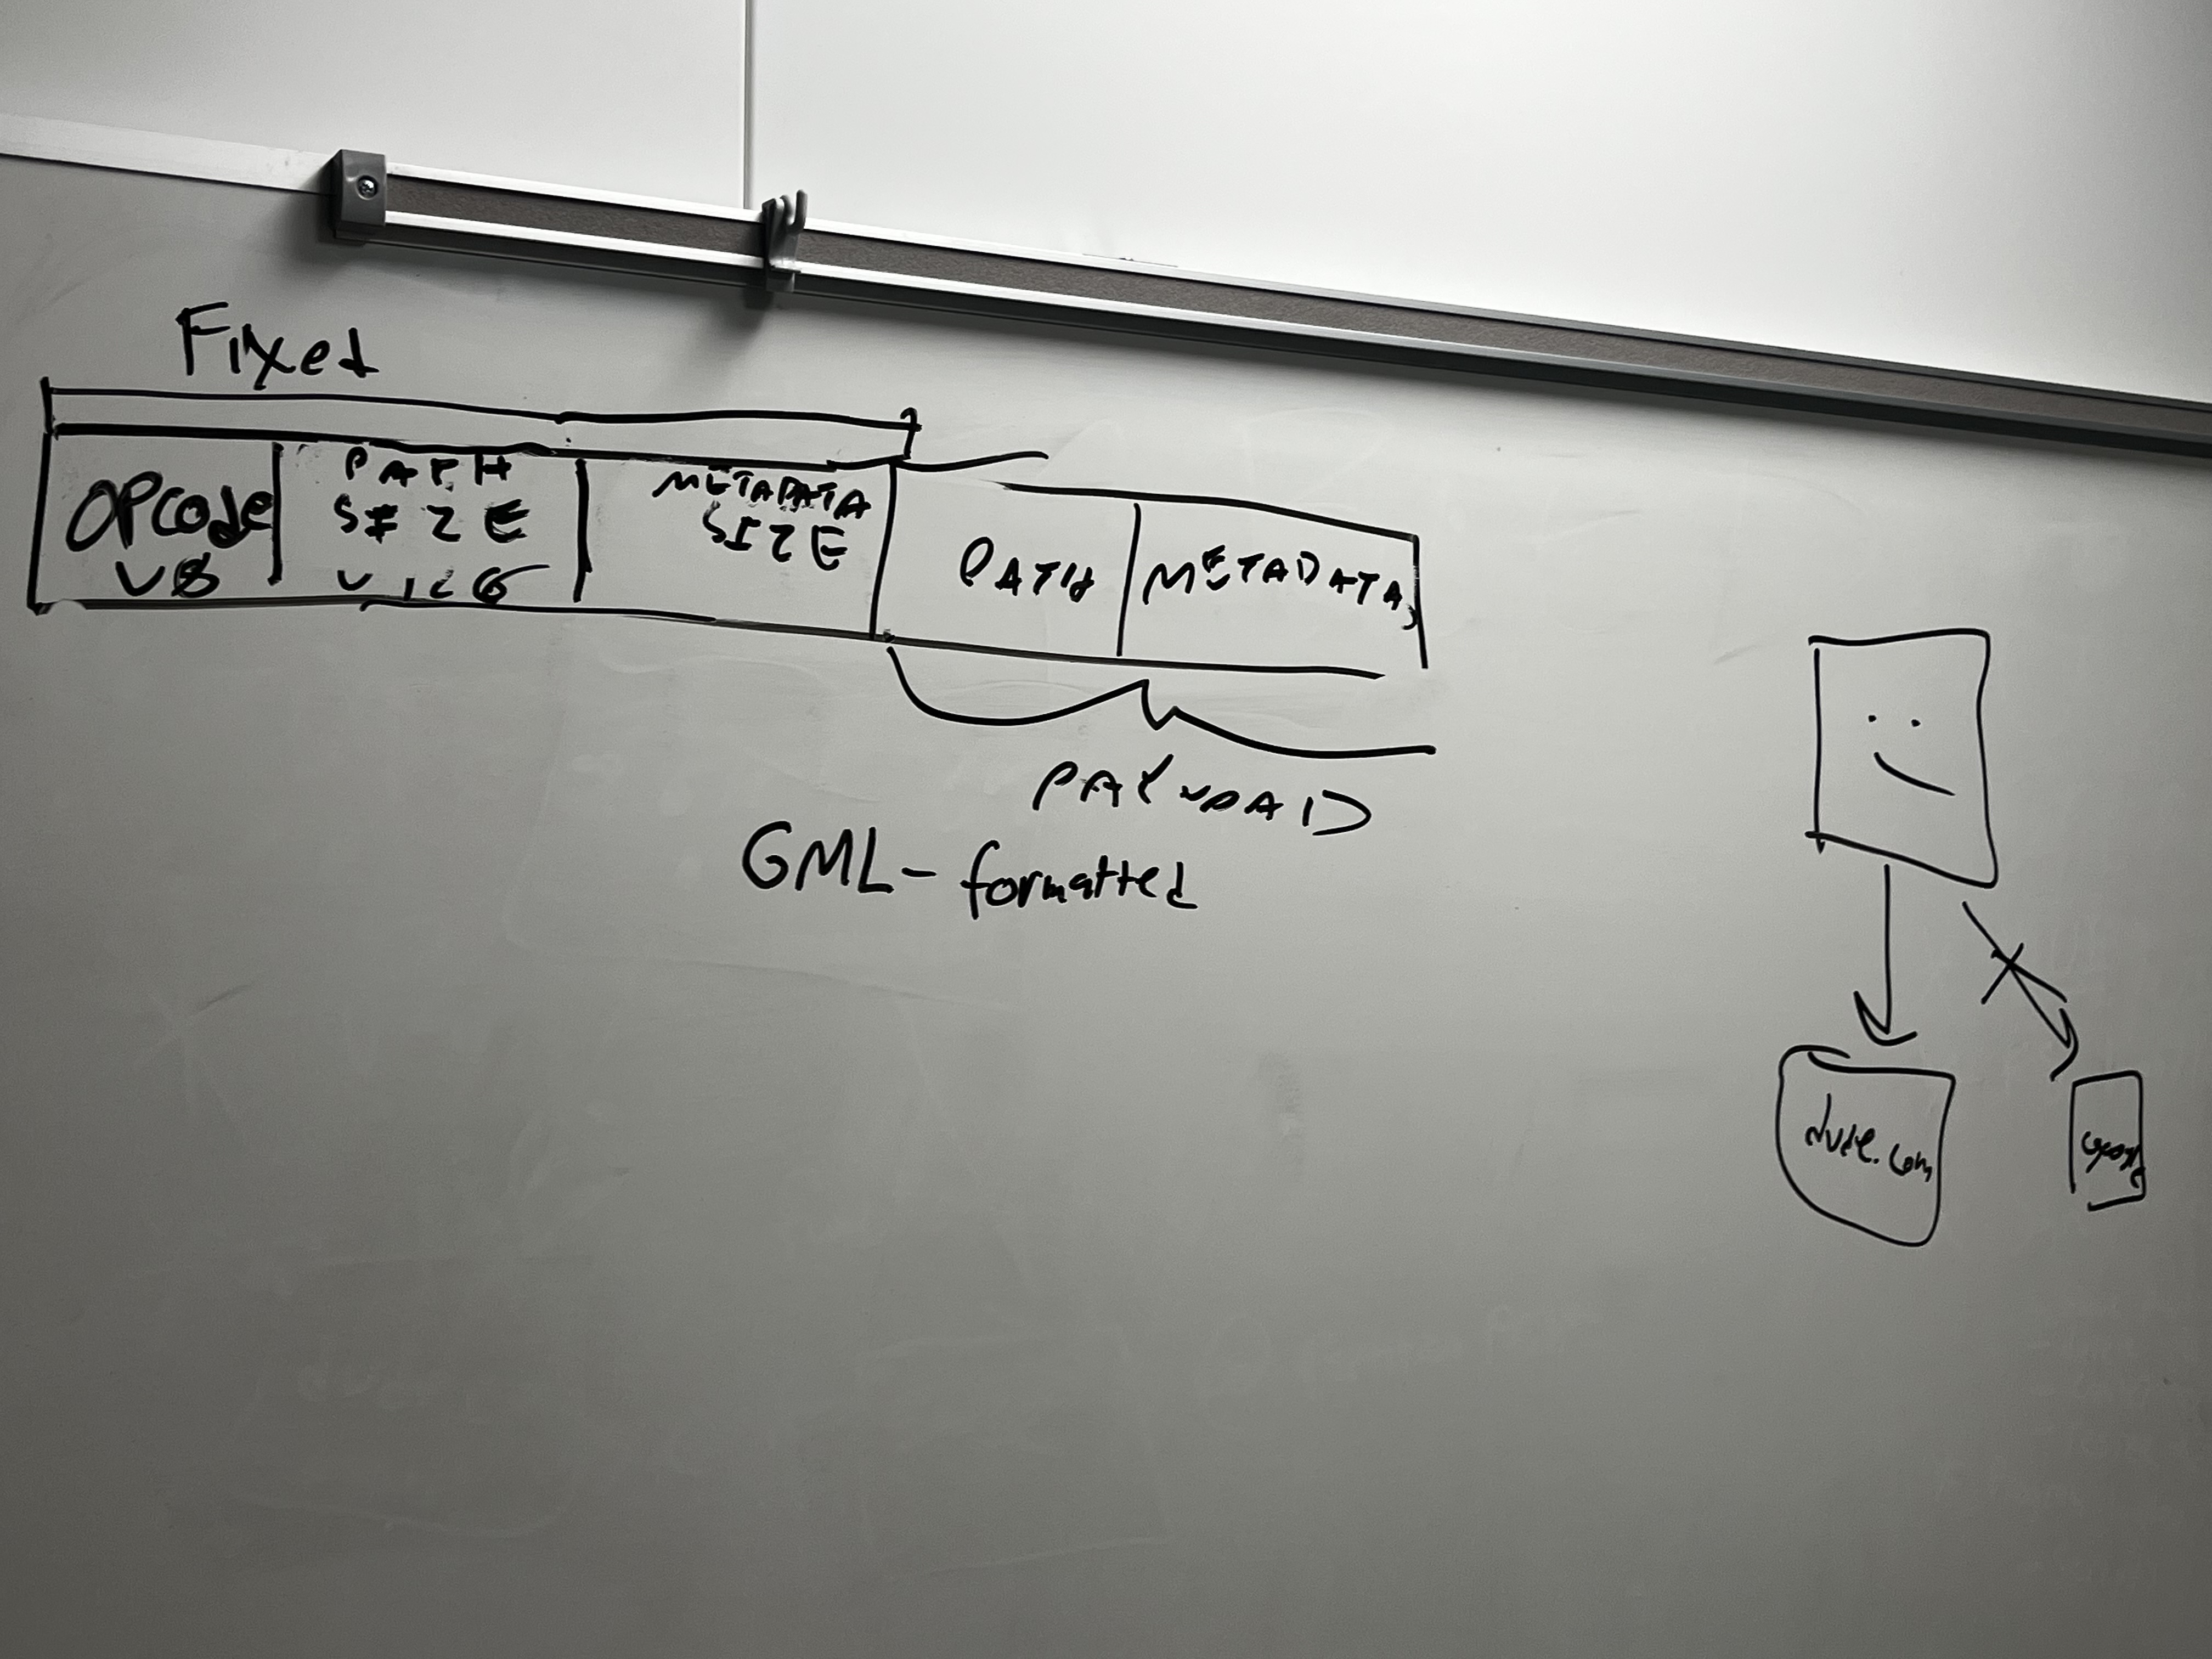 Fixed
OPCode
U8
PATH
SIZE
U16
METADATA
SIZE
PATH
METADATA
PAYLOAD
GML-formatted
dude.com